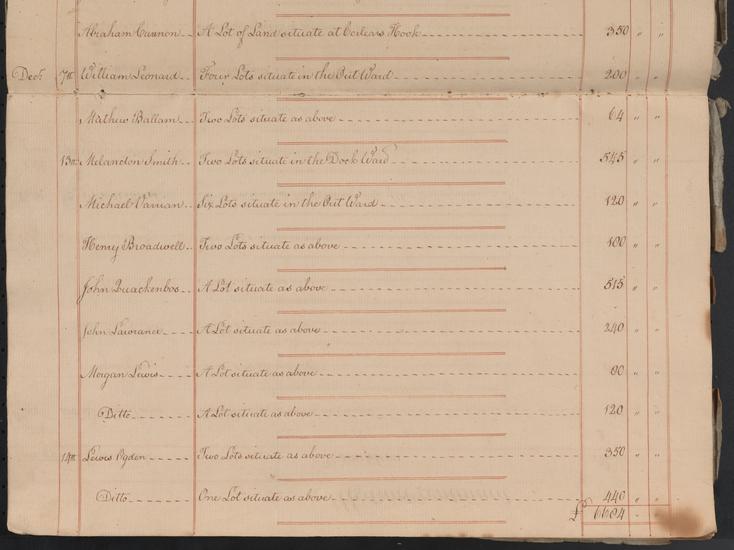 Abraham Cannon A Lot of Land situate at Corlears Hook 350 " "
Decr. 7th William Leonard Four Lots situate in the Out Ward 200 " "
Mathew Ballam Two Lots situate as above 64 " "
13th Melancton Smith Two Lots situate in the Dock Ward 545 " "
Michael Varian Six Lots situate in the Out Ward 120 " "
Henry Broadwell Two Lots situate as above 100 " "
John Quackenbos A Lot situate as above 515 " "
John Lawrance A Lot situate as above 240 " "
Morgan Lewis A Lot situate as above 80 " "
Ditto A Lot situate as above 120 " "
14th Lewis Ogden Two Lots situate as above 350 " "
Ditto One Lot situate as above 440 " "
6604 " "